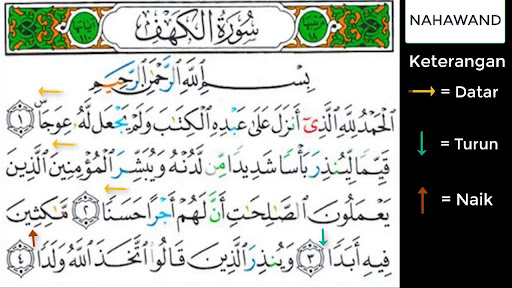 سُورَةُ الْكَهْفِ
بِسْمِ اللَّهِ الرَّحْمَٰنِ الرَّحِيمِ
الْحَمْدُ لِلَّهِ الَّذِي أَنزَلَ عَلَىٰ عَبْدِهِ الْكِتَٰبَ وَلَمْ يَجْعَل لَّهُ عِوَجَا ۜ ١
قَيِّمًا لِّيُنذِرَ بَأْسًا شَدِيدًا مِّن لَّدُنْهُ وَيُبَشِّرَ الْمُؤْمِنِينَ الَّذِينَ
يَعْمَلُونَ الصَّٰلِحَٰتِ أَنَّ لَهُمْ أَجْرًا حَسَنًا ٢ مَّٰكِثِينَ
فِيهِ أَبَدًا ٣ وَيُنذِرَ الَّذِينَ قَالُوا اتَّخَذَ اللَّهُ وَلَدًا ٤
NAHAWAND
Keterangan
→ = Datar
↓ = Turun
↑ = Naik